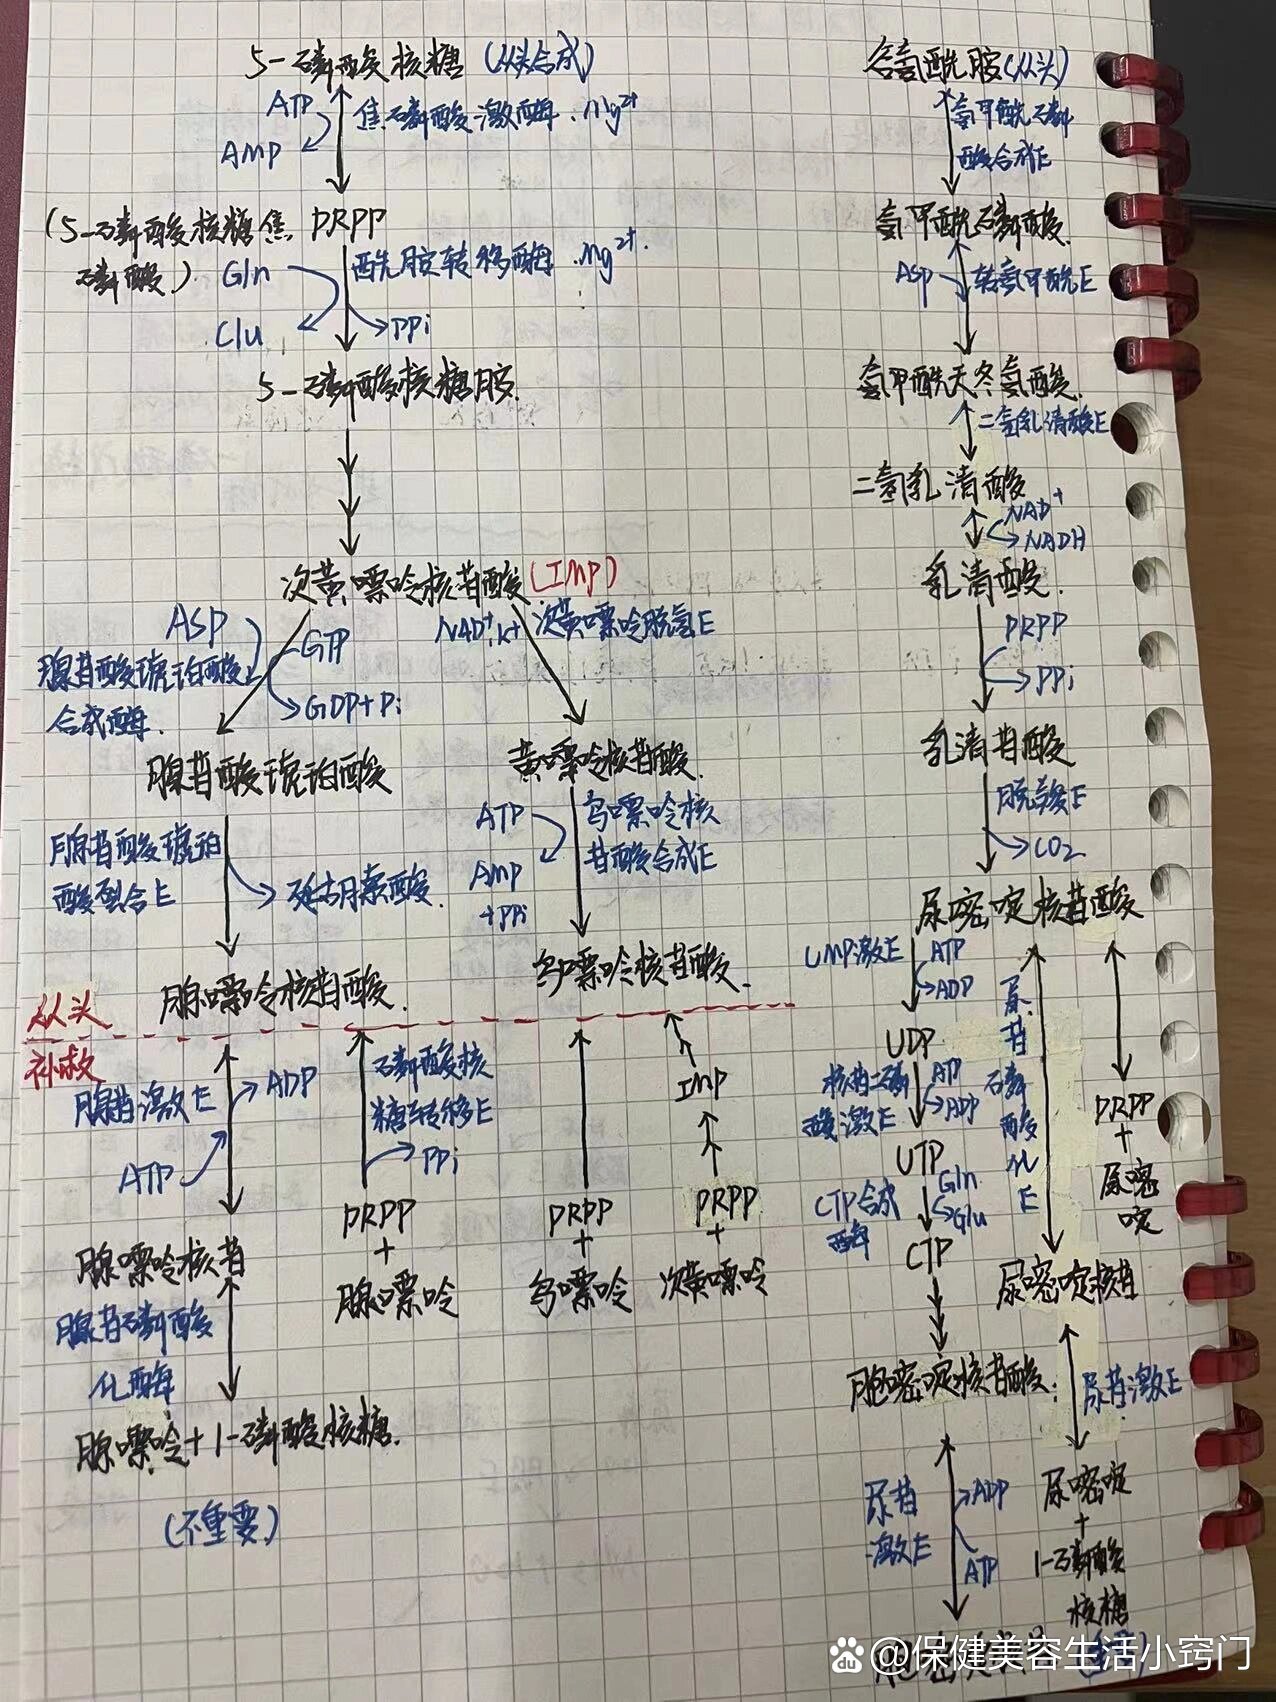 5-磷酸核糖(从头合成)
ATP
焦磷酸激酶.Mg2+
AMP
(5-磷酸核糖焦
磷酸)
PRPP
Gln
酰胺转移酶.Mg2+.
Glu
PPi
5-磷酸核糖胺.
次黄嘌呤核苷酸(IMP)
ASP
GTP
腺苷酸琥珀酸
合成酶.
GDP+Pi
NAD+,K+
次黄嘌呤脱氢E
腺苷酸琥珀酸
黄嘌呤核苷酸.
腺苷酸琥珀
酸裂合E
延胡索酸.
ATP
AMP
+PPi
鸟嘌呤核
苷酸合成E
腺嘌呤核苷酸.
鸟嘌呤核苷酸.
从头
补救
腺苷激E
ADP
ATP
磷酸核
糖转移E
PPi
IMP
腺嘌呤核苷
PRPP
+
腺嘌呤
PRPP
+
鸟嘌呤
PRPP
+
次黄嘌呤
腺苷磷酸
化酶
腺嘌呤+1-磷酸核糖.
(不重要)
谷氨酰胺(从头)
氨甲酰磷
酸合成E
氨甲酰磷酸.
ASP
转氨甲酰E
氨甲酰天冬氨酸.
二氢乳清酸E
二氢乳清酸
NAD+
NADH
乳清酸.
PRPP
PPi
乳清苷酸
脱羧E
CO2
尿嘧啶核苷酸
UMP激E
ATP
ADP
UDP
核苷二磷
酸激E
ATP
ADP
UTP
CTP合成
酶
Gln
Glu
CTP
胞嘧啶核苷酸.
尿
苷
磷
酸
化
E
PRPP
+
尿嘧
啶
尿嘧啶核苷
尿苷激E
尿嘧啶
+
1-磷酸
核糖
尿苷
激E
ADP
ATP
@保健美容生活小窍门